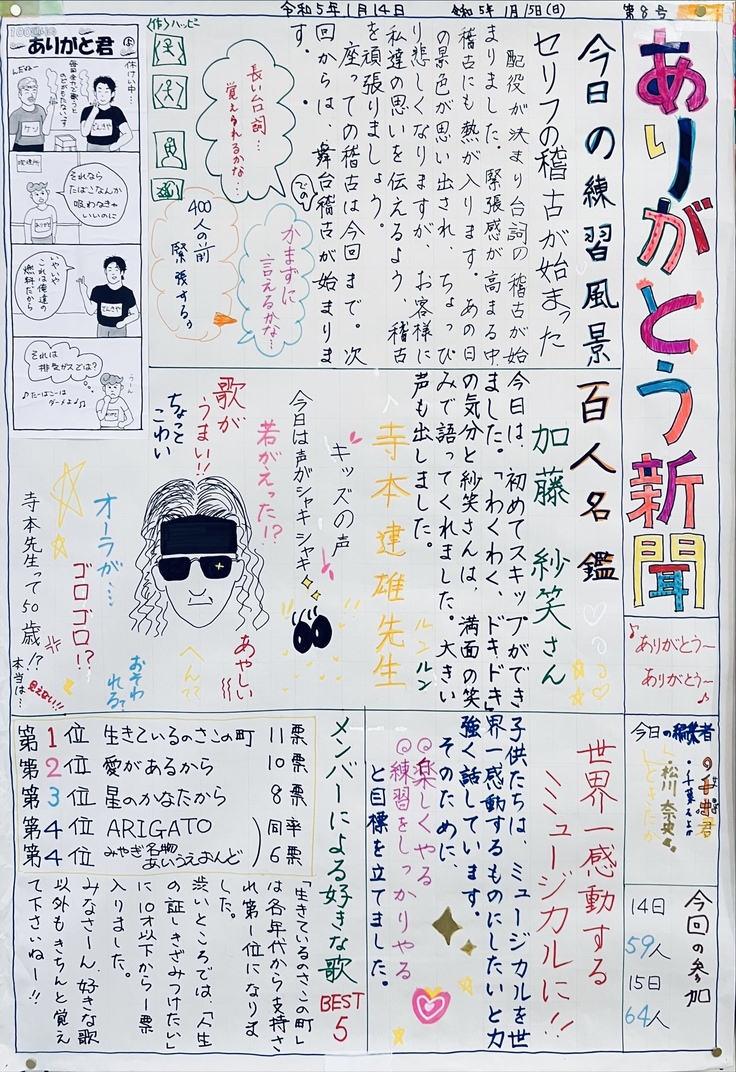 令和5年1月14日
令和5年1月15日(日)
第8号
ありがとう新聞
♪ありがとう〜
ありがとう〜♪
今日の編集者
・松川 奈央
今回の参加
14日
59人
15日
64人
今日の練習風景
セリフの稽古が始まった
配役が決まり台詞の稽古が始
まりました。緊張感が高まる中、
稽古にも熱が入ります。あの日
の景色が思い出され、ちょっぴ
り悲しくなりますが、お客様に
私達の思いを伝えるよう、稽古
を頑張りましょう。
座っての稽古は今回まで。次
回からは、舞台稽古が始まりま
す。
での
長い台詞…
覚えられるかな…
かまずに
言えるかな…
400人の前
緊張する。
〈作〉ハッピー
ありがと君
休けい中…
んだねー
毎回全力で歌うと
のどがもたないっす
ケン
てんさや
喫煙所
それなら
たばこなんか
吸わなきゃ
いいのに
ありがと
いやいや
これは俺達の
燃料だから
てんさや
それは
排気ガスでは?
うーん
♪たーばこーは
ダーメよ♪♫
百人名鑑
加藤 紗笑さん
今日は、初めてスキップができ
ました。「わくわく、ドキドキ」
の気分と紗笑さんは、満面の笑
みで語ってくれました。大きい
声も出しました。
ルンルン
寺本建雄先生
キッズの声
今日は声がシャキシャキ
若がえった!?
歌が
うまい!!
ちょっと
こわい
あやしい
へん??
おそわ
れる?
オーラが…
ゴロゴロ!?
寺本先生って50歳!?
本当は…
見えない!!
世界一感動する
ミュージカルに!!
子供たちは、ミュージカルを世
界一感動するものにしたいと力
強く話しています。
そのために、
◎楽しくやる
◎練習をしっかりやる
と目標を立てました。
メンバーによる好きな歌
BEST
5
第1位 生きているのさこの町 11票
第2位 愛があるから 10票
第3位 星のかなたから 8票
第4位 ARIGATO
第4位 みやぎ名物
あいうえおんど
同率
6票
「生きているのさこの町」
は各年代から支持さ
れ第一位になりま
した。
渋いところでは、「人生
の証しきざみつけたい」
に10才以下から一票
入りました。
みなさーん、好きな歌
以外もきちんと覚え
て下さいねー!!